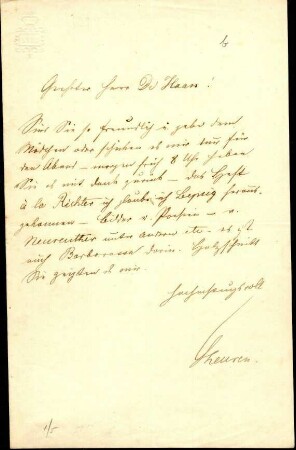 Geehrter Herr Dr Haan!
Sind Sie so freundlich u. geben dem
Mädchen oder schicken es mir nur für
den Abend – morgen früh 8 Uhr haben
Sie es mit Dank zurück – das Heft
à la Richter ich glaube, ich Leipzig heraus
gekommen – Bilder u. Poesien – v.
Neureuther unter andern etc – es ist
auch Barbarossa darin. Holzschnitt
Sie zeigten es mir.
Hochachtungsvoll
Scheuren.
1/5